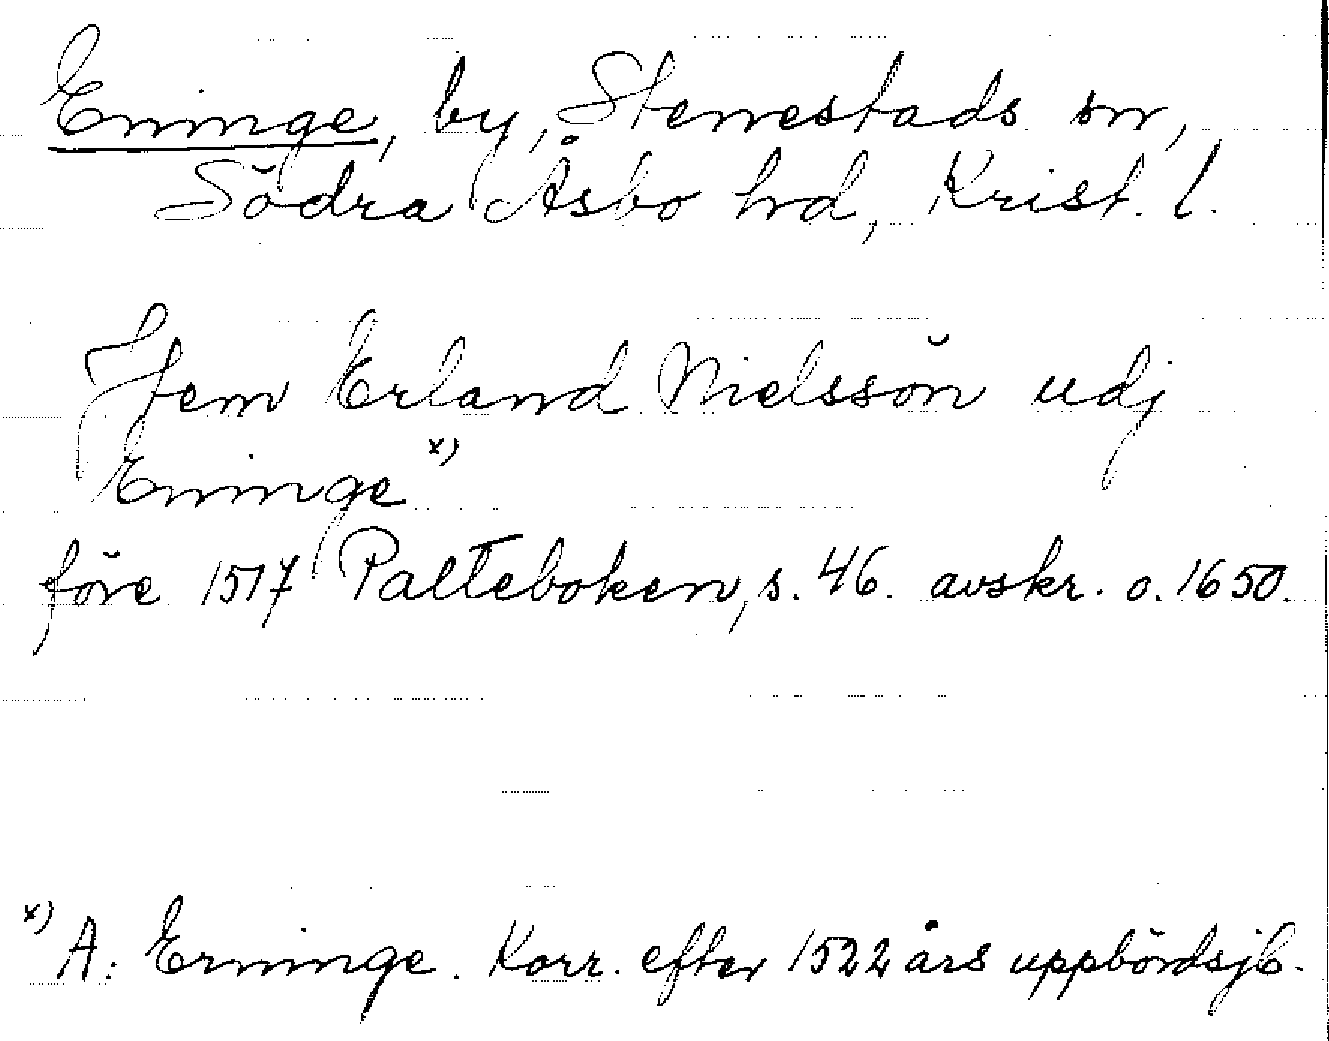 Eninge, by, Stenestads sn,
Södra Åsbo hrd, Krist. l.
Jtem Erland Nielssön udj
Eninge x)
före 1517 Palteboken, s. 46. avskr. o. 1650.
x) A: Erninge. Korr. efter 1522 års uppbördsjb.